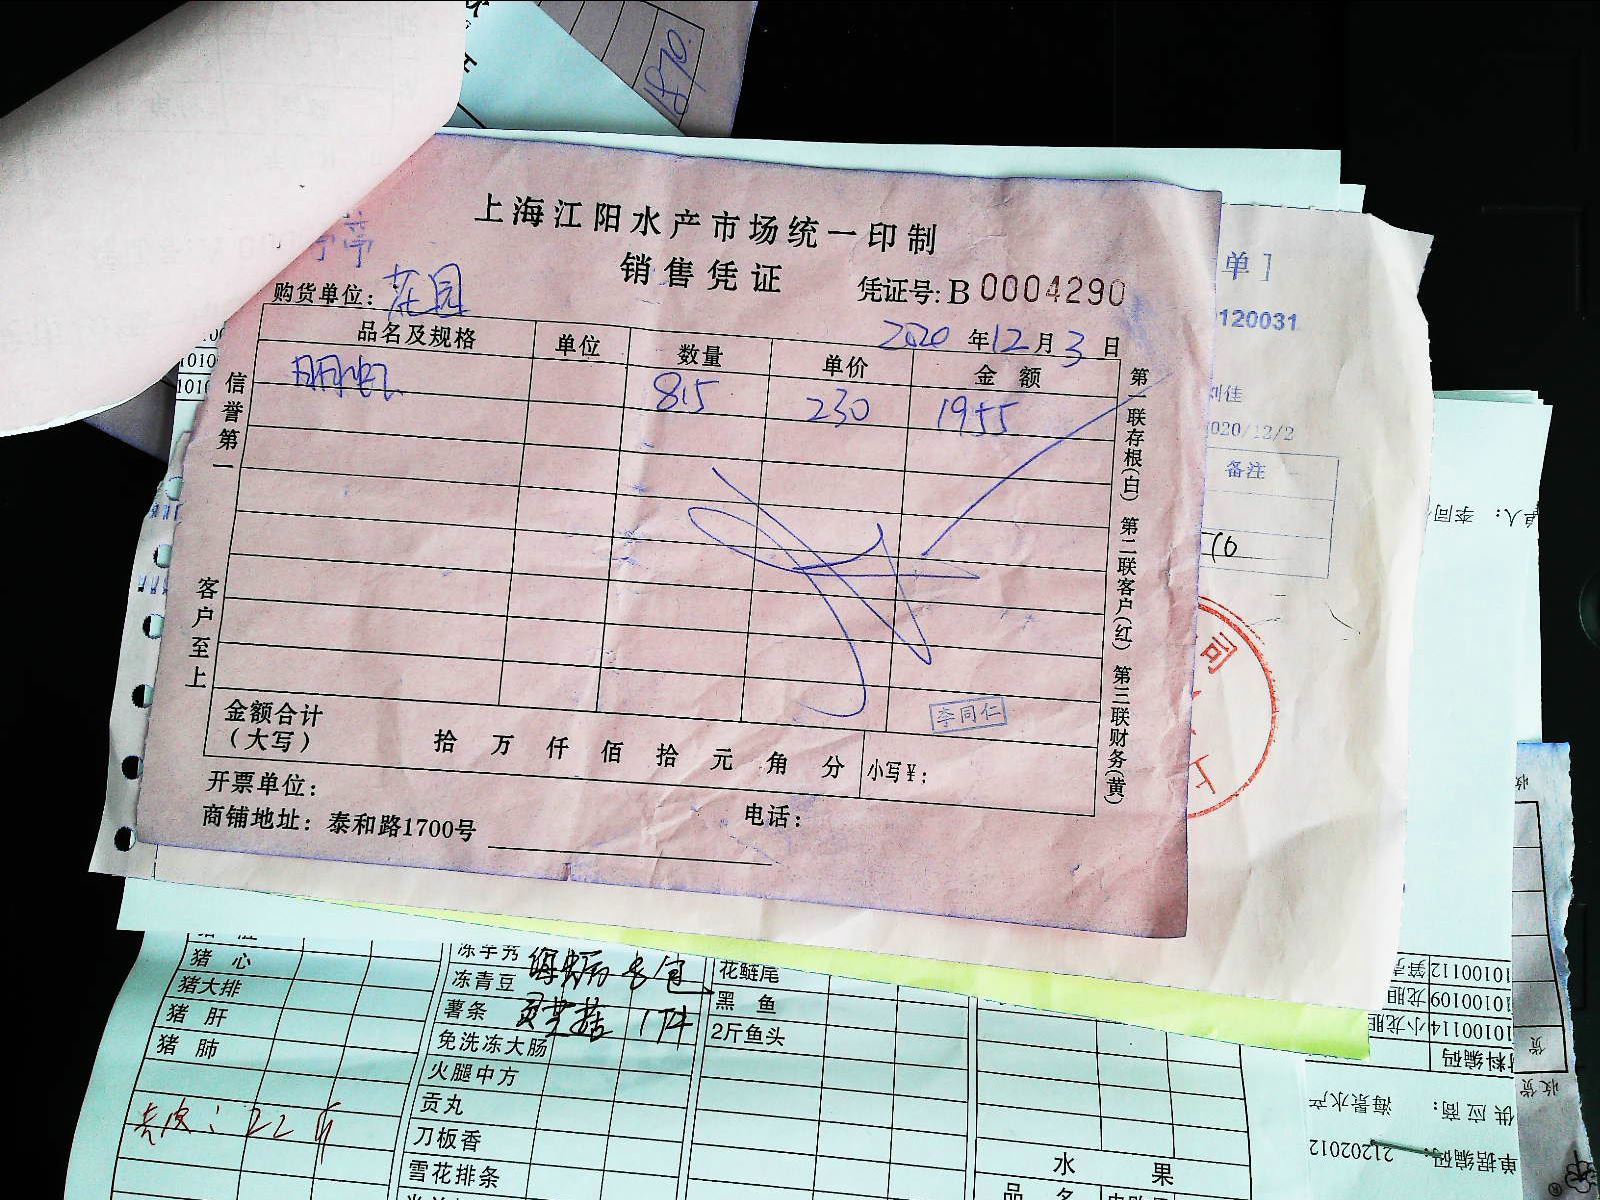 1870.
上海江阳水产市场统一印制
销售凭证
凭证号: B 0004290
购货单位: 花园
2020 年 12 月 3 日
品名及规格 单位 数量 单价 金额
815 230 1955
信誉第一
客户至上
第一联存根(白) 第二联客户(红) 第三联财务(黄)
李同仁
金额合计
(大写)
拾 万 仟 佰 拾 元 角 分 小写¥:
开票单位:
商铺地址: 泰和路1700号
电话:
单]
120031
刘佳
020/12/2
备注
司
猪 心
猪大排
猪 肝
猪 肺
冻青豆
薯条
免洗冻大肠
火腿中方
贡丸
刀板香
雪花排条
花鲢尾
黑 鱼
2斤鱼头
水 果
品 名
10100112
10100109 龙胆
10100114 小龙胆
料编码
供应商: 海景水产
单据编码: 21202012
收货